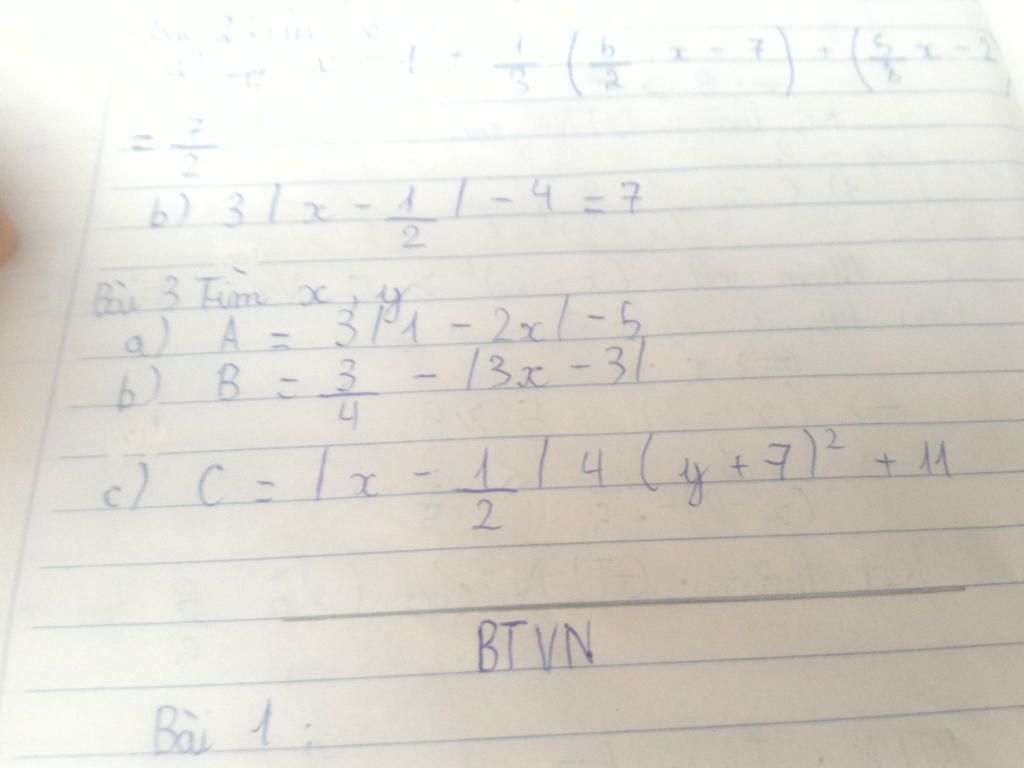 x - 1 + 1/3 (5/2 x - 7) + (5/6 x - 2
= 7/2
b) 3 | x - 1/2 | - 4 = 7
Bài 3 Tìm x, y
a) A = 3 | 1 - 2x | - 5
b) B = 3/4 - | 3x - 3 |
c) C = | x - 1/2 | 4 ( y + 7 )² + 11
BTVN
Bài 1 :